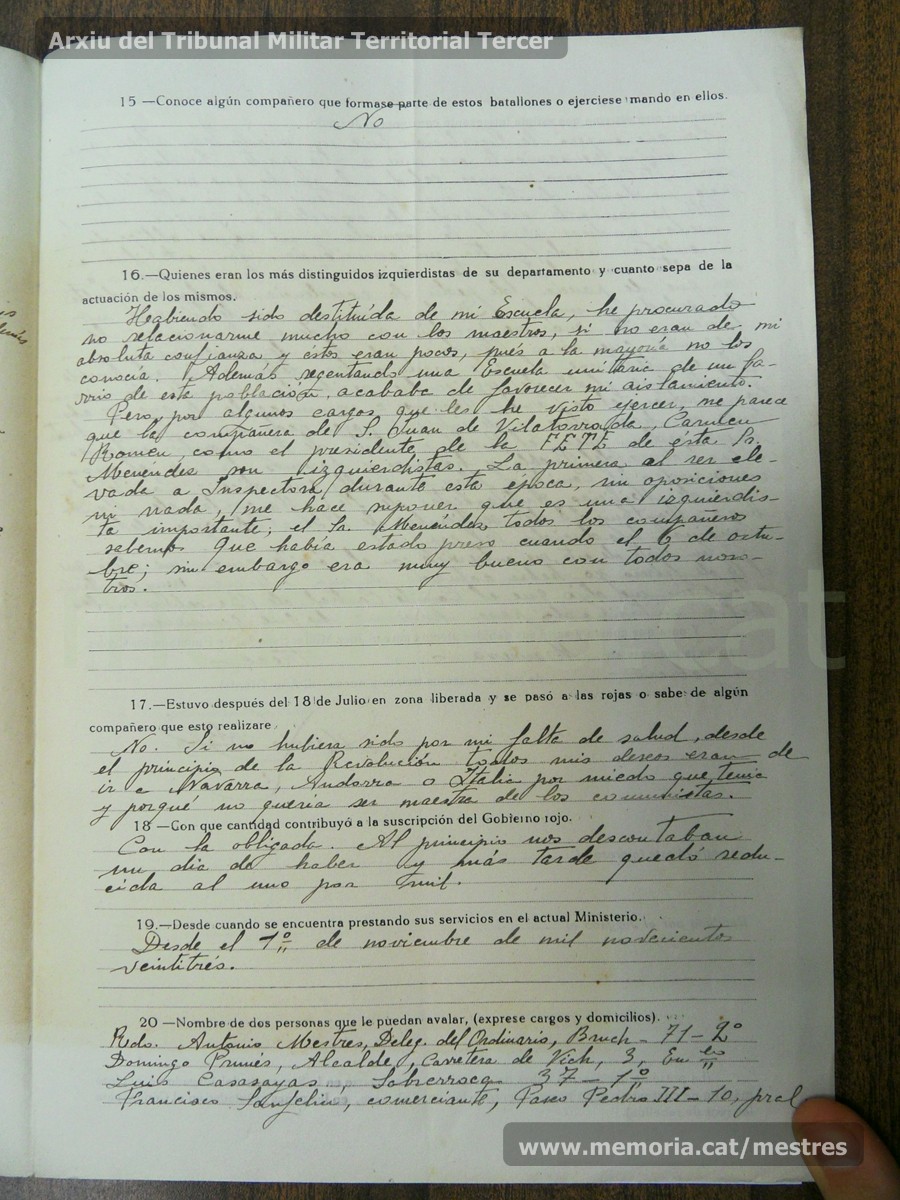 Arxiu del Tribunal Militar Territorial Tercer
15 —Conoce algún compañero que formase parte de estos batallones o ejerciese mando en ellos.
No
16.—Quienes eran los más distinguidos izquierdistas de su departamento y cuanto sepa de la
actuación de los mismos.
Habiendo sido destituída de mi Escuela, he procurado
no relacionarme mucho con los maestros, si no eran de mi
absoluta confianza y éstos eran pocos, pués a la mayoría no los
conocía. Además regentando una Escuela unitaria de un ba-
rrio de esta población, acababa de favorecer mi aislamiento.
Pero, por algunos cargos que les he visto ejercer, me parece
que la compañera de S. Juan de Vilatorrada, Carmen
Romeu, como el presidente de la FETE de ésta Sr.
Menéndes son izquierdistas. La primera al ser ele-
vada a Inspectora durante esta época, sin oposiciones
ni nada, me hace suponer que es una izquierdis-
ta importante; el Sr. Menéndes todos los compañeros
sabemos que había estado preso cuando el 6 de octu-
bre; sin embargo era muy bueno con todos noso-
tros.
17.—Estuvo después del 18 de Julio en zona liberada y se pasó a las rojas o sabe de algún
compañero que esto realizare
No. Si no hubiera sido por mi falta de salud, desde
el principio de la Revolución todos mis deseos eran de
ir a Navarra, Andorra o Itália por miedo que tenía
y porqué no quería ser maestra de los comunistas.
18 —Con que cantidad contribuyó a la suscripción del Gobierno rojo.
Con la obligada. Al principio nos descontaban
un dia de haber y más tarde quedó redu-
cida al uno por mil.
19.—Desde cuando se encuentra prestando sus servicios en el actual Ministerio.
Desde el 1º de noviembre de mil novecientos
veintitrés.
20 —Nombre de dos personas que le puedan avalar, (exprese cargos y domicilios).
Rdo. Antonio Mestres, Deleg. del Ordinario, Bruch - 71 - 2º
Domingo Prunés, Alcalde, Carretera de Vich, 3,
Luis Casasayas, Sobrerroca 37 - 1º
Francisco Sanfeliu, comerciante, Paseo Pedro III - 10, pral
www.memoria.cat/mestres